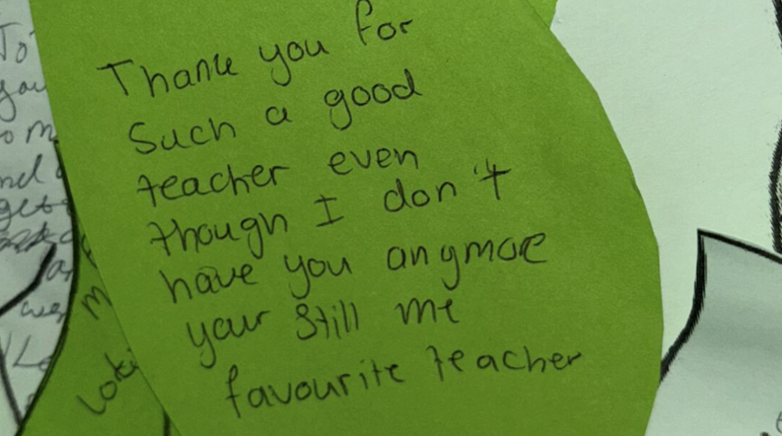 Thank you for
Such a good
teacher even
though I don't
have you anymore
your still me
favourite teacher